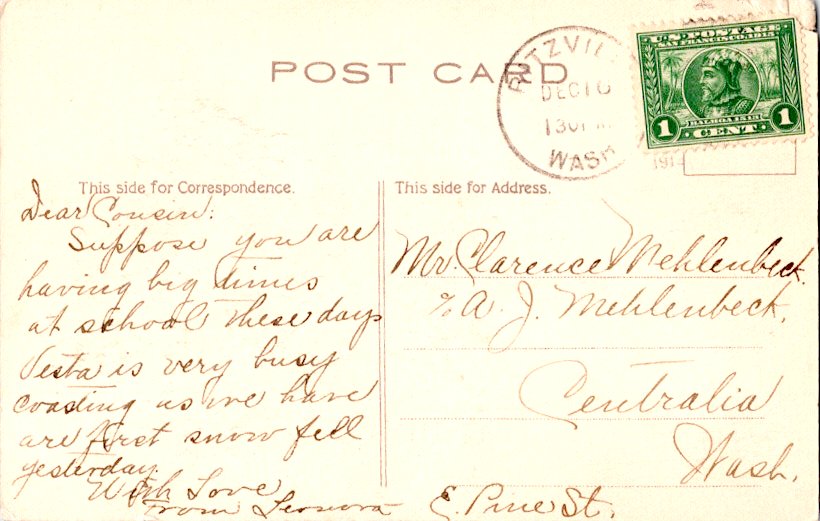 POST CARD
RITZVIL
DEC 10
130P M
WASH
1914
U.S. POSTAGE
SAN FRANCISCO 1915
BALBOA 1513
1 CENT 1
This side for Correspondence.
Dear Cousin:
Suppose you are
having big times
at school these days
Vesta is very busy
coasting as we have
are first snow fell
yesterday.
With Love
From Leonora
This side for Address.
Mr. Clarence Mehlenbeck.
% A. J. Mehlenbeck,
Centralia
Wash.
E. Pine St.